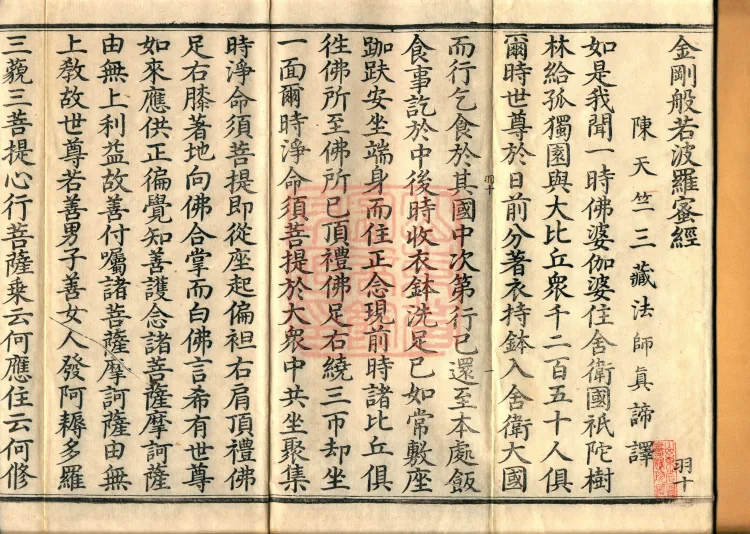 金剛般若波羅蜜經
陳天竺三藏法師眞諦譯
羽十
如是我聞一時佛婆伽婆住舍衛國祇陀樹
林給孤獨園與大比丘衆千二百五十人俱
爾時世尊於日前分著衣持鉢入舍衛大國
羽十
一
而行乞食於其國中次第行已還至本處飯
食事訖於中後時收衣鉢洗足已如常敷座
跏趺安坐端身而住正念現前時諸比丘俱
往佛所至佛所已頂禮佛足右繞三帀却坐
一面爾時淨命須菩提於大衆中共坐聚集
時淨命須菩提即從座起偏袒右肩頂禮佛
足右膝著地向佛合掌而白佛言希有世尊
如來應供正徧覺知善護念諸菩薩摩訶薩
由無上利益故善付囑諸菩薩摩訶薩由無
上敎故世尊若善男子善女人發阿耨多羅
三藐三菩提心行菩薩乗云何應住云何修